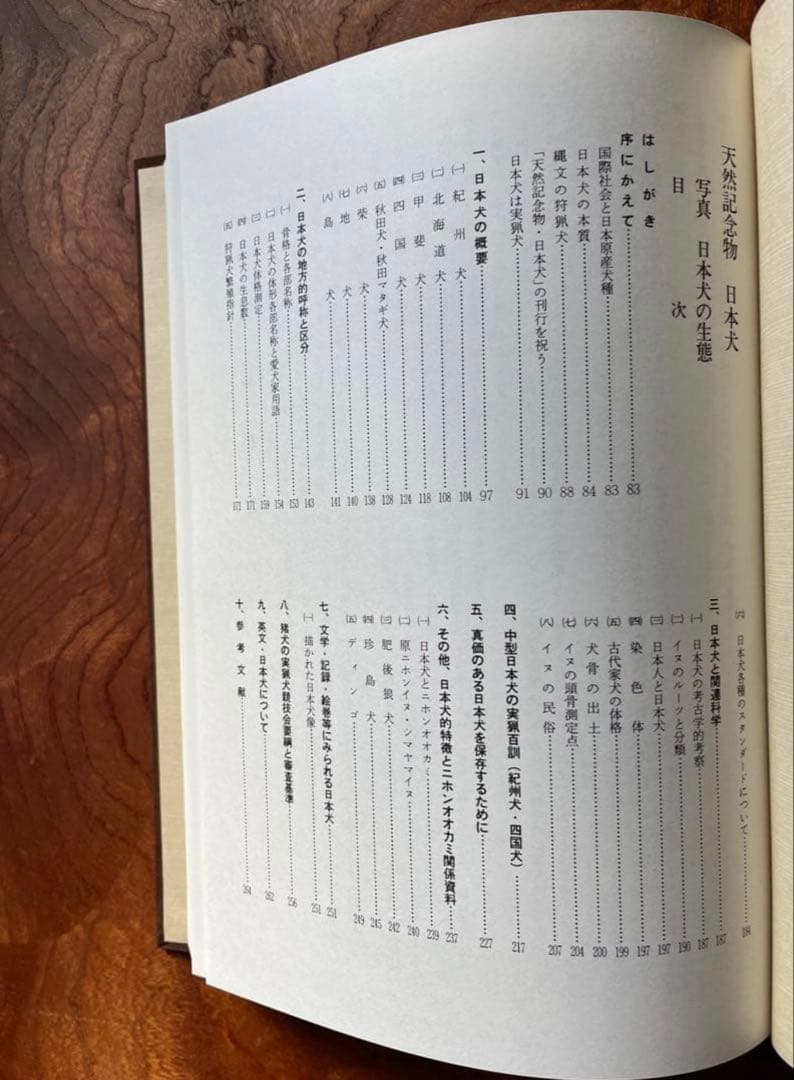 天然記念物 日本犬
写真 日本犬の生態
目次
はしがき
序にかえて……83
国際社会と日本原産犬種……83
日本犬の本質……84
縄文の狩猟犬……88
「天然記念物・日本犬」の刊行を祝う……90
日本犬は実猟犬……91
一、日本犬の概要……97
㈠ 紀州犬……104
㈡ 北海道犬……108
㈢ 甲斐犬……118
㈣ 四国犬……124
㈤ 秋田犬・秋田マタギ犬……128
㈥ 柴犬……138
㈦ 地犬……140
㈧ 島犬……141
二、日本犬の地方的呼称と区分……143
㈠ 骨格と各部名称……153
㈡ 日本犬の体形各部名称と愛犬家用語……154
㈢ 日本犬体格測定……159
㈣ 日本犬の生息数……171
㈤ 狩猟犬繁殖指針……171
㈥ 日本犬各種のスタンダードについて……184
三、日本犬と関連科学……187
㈠ 日本犬の考古学的考察……187
㈡ イヌのルーツと分類……190
㈢ 日本人と日本犬……197
㈣ 染色体……197
㈤ 古代家犬の体格……199
㈥ 犬骨の出土……200
㈦ イヌの頭骨測定点……204
㈧ イヌの民俗……207
四、中型日本犬の実猟百訓（紀州犬・四国犬）……217
五、真価のある日本犬を保存するために……227
六、その他、日本犬的特徴とニホンオオカミ関係資料……237
㈠ 日本犬とニホンオオカミ……239
㈡ 原ニホンイヌ・シマヤマイヌ……240
㈢ 肥後狼犬……242
㈣ 珍島犬……245
㈤ ディンゴ……249
七、文学・記録・絵巻等にみられる日本犬……251
㈠ 描かれた日本犬像……251
八、猪犬の実猟犬競技会要綱と審査基準……256
九、英文・日本犬について……262
十、参考文献……264